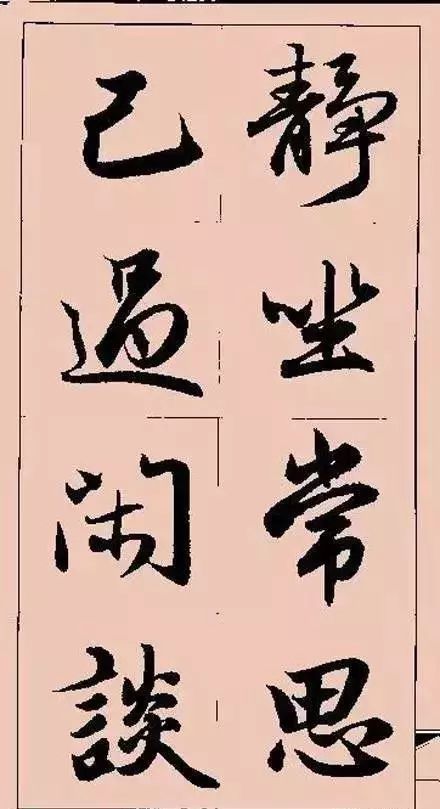 靜坐常思
己過闲談